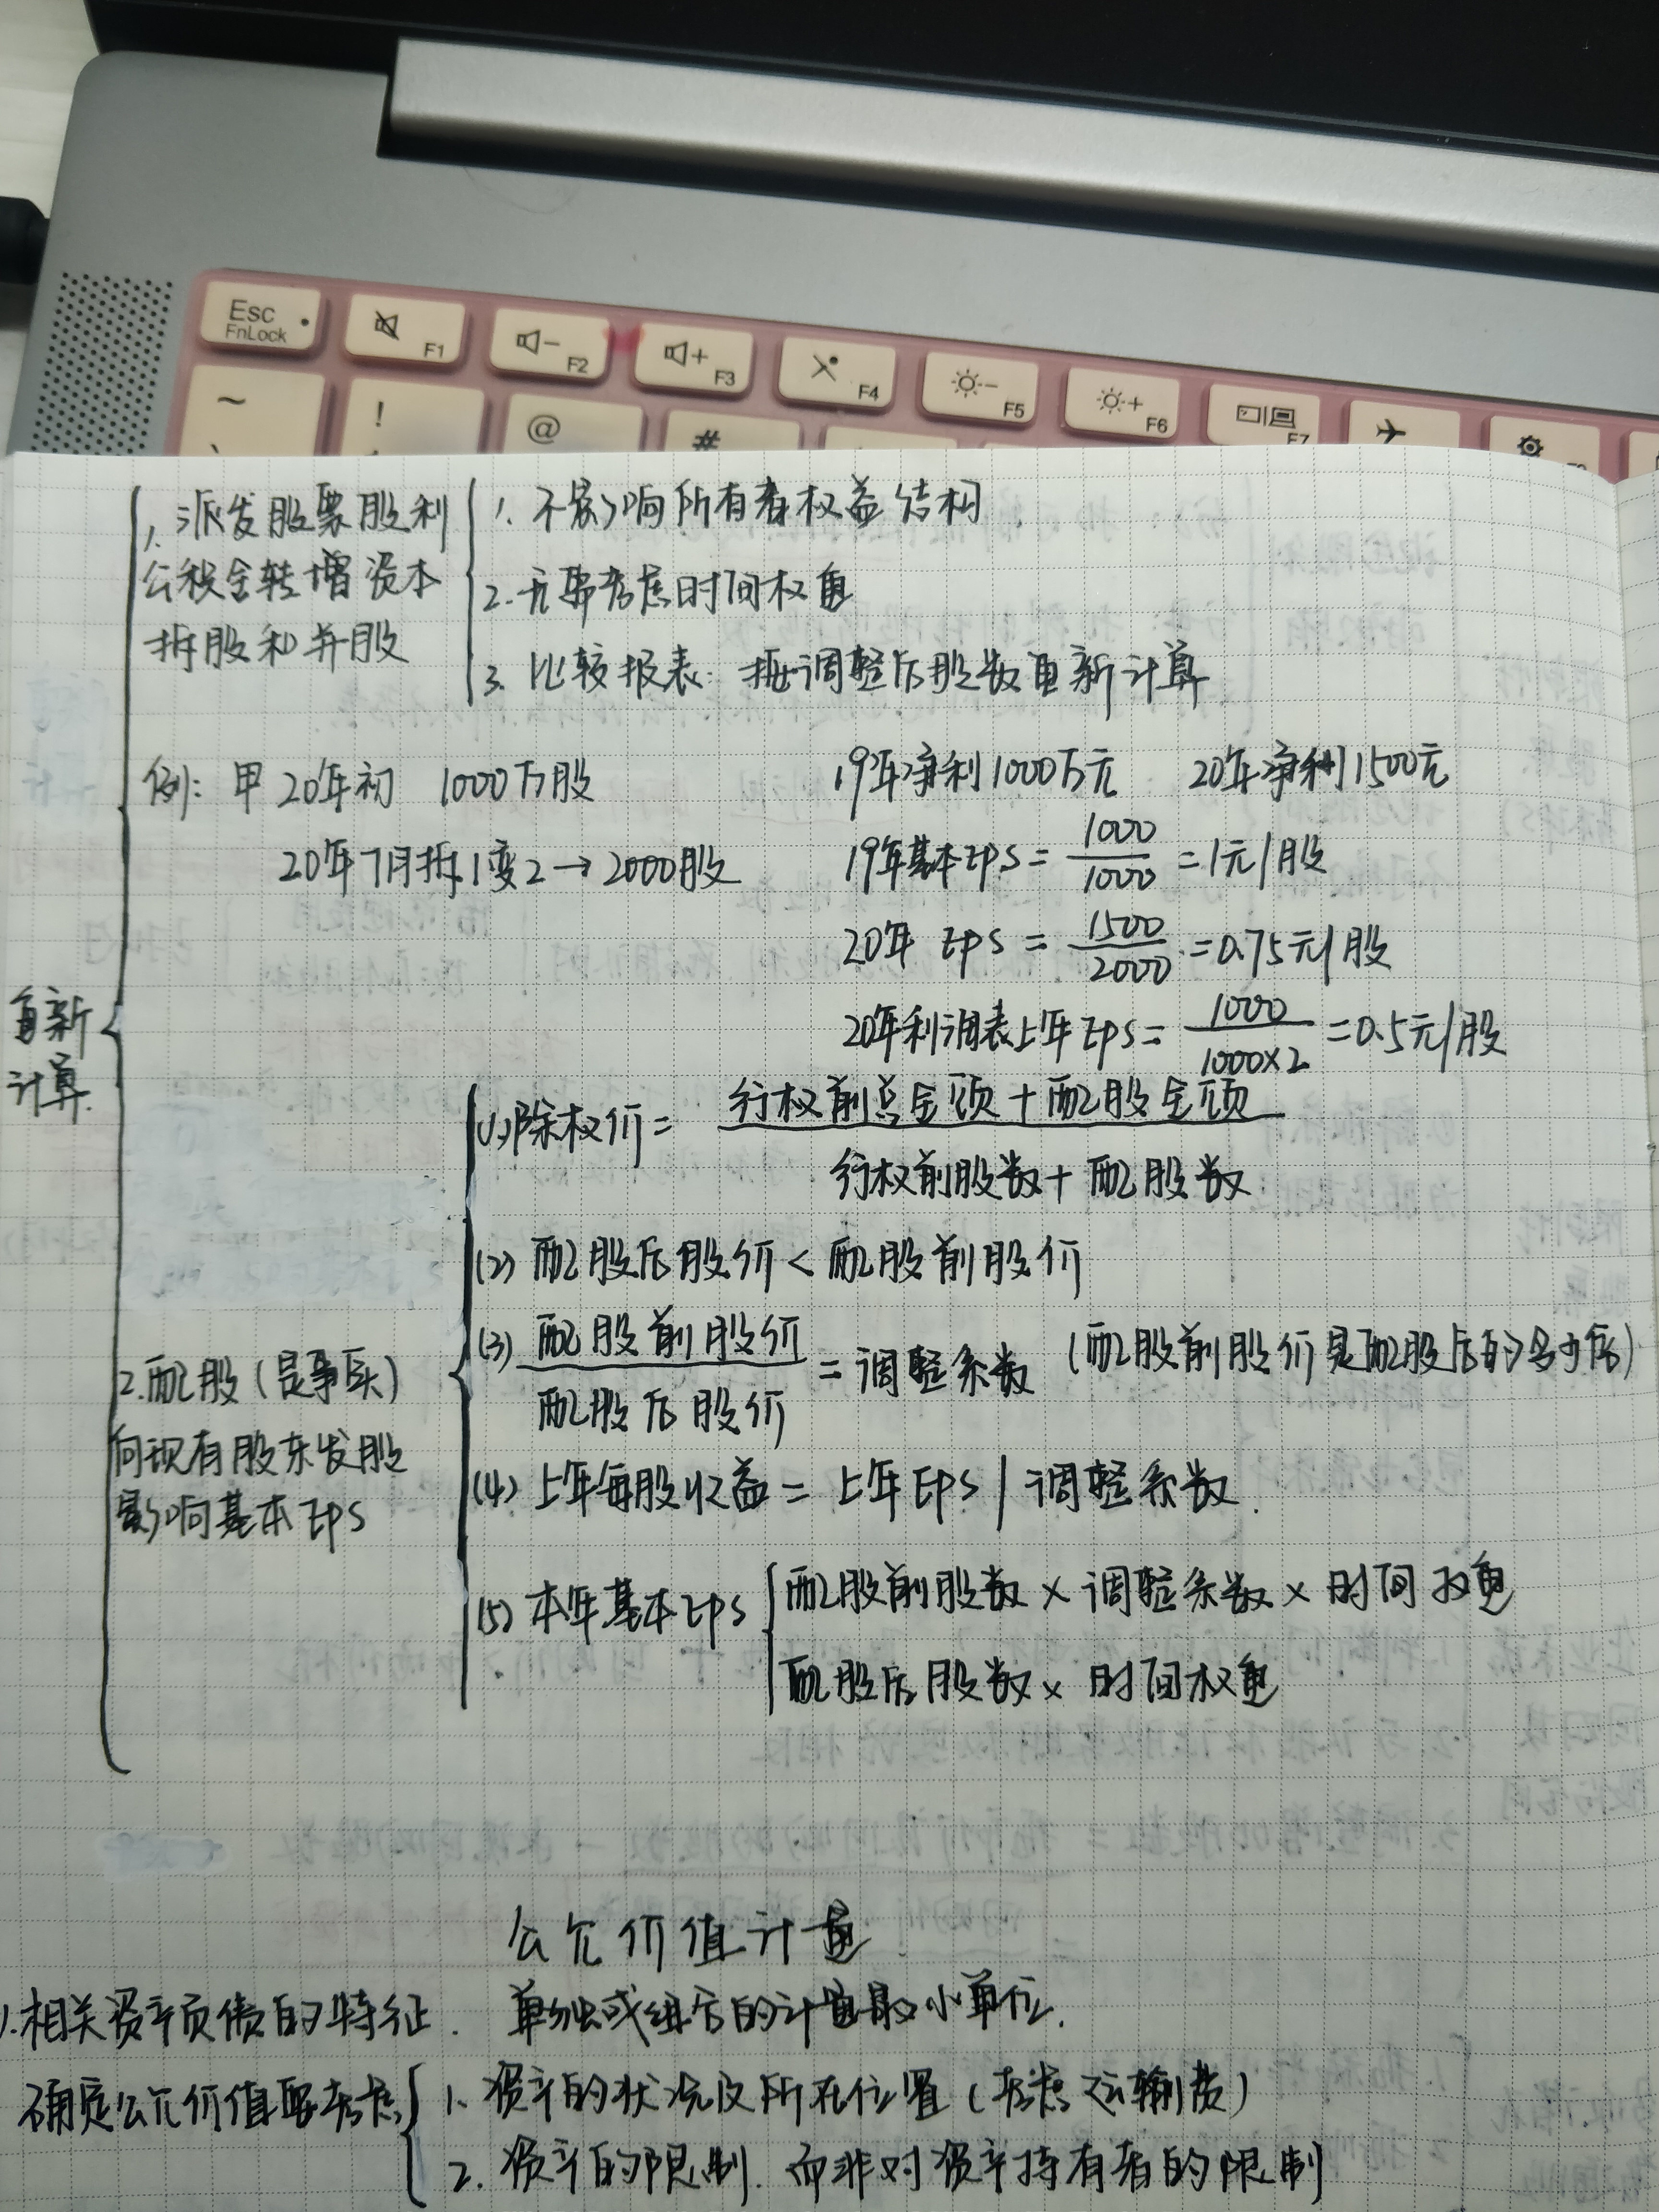 Esc
FnLock
F1
F2
F3
F4
F5
F6
F7
~
!
@
#
1. 派发股票股利
公积金转增资本
拆股和并股
1. 不影响所有者权益结构
2. 无需考虑时间权重
3. 比较报表: 按调整后股数重新计算
例: 甲 20年初 1000万股
20年7月拆1变2→2000股
19年净利1000万元 20年净利1500元
19年基本EPS = 1000/1000 = 1元/股
20年 EPS = 1500/2000 = 0.75元/股
20年利润表上年EPS = 1000/1000×2 = 0.5元/股
重新
计算.
2. 配股(是事实)
向现有股东发股
影响基本EPS
(1) 除权价 = 行权前总金额+配股金额/行权前股数+配股数
(2) 配股后股价 < 配股前股价
(3) 配股前股价/配股后股价 = 调整系数 (配股前股价是配股后的多少倍)
(4) 上年每股收益 = 上年EPS / 调整系数.
(5) 本年基本EPS
配股前股数 × 调整系数 × 时间权重
配股后股数 × 时间权重
公允价值计量
1. 相关资产负债的特征. 单独或组合的计量最小单位.
确定公允价值要考虑
1. 资产的状况及所在位置(考虑运输费)
2. 资产的限制. 而非对资产持有者的限制